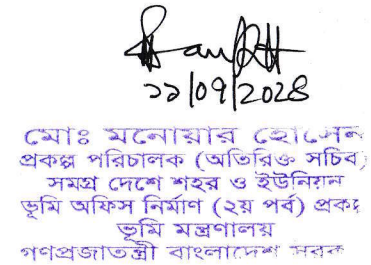 মোঃ মনোয়ার হোসেন
প্রকল্প পরিচালক (অতিরিক্ত সচিব)
সমগ্র দেশে শহর ও ইউনিয়ন
ভূমি অফিস নির্মাণ (২য় পর্ব) প্রকল্প
ভূমি মন্ত্রণালয়
গণপ্রজাতন্ত্রী বাংলাদেশ সরক